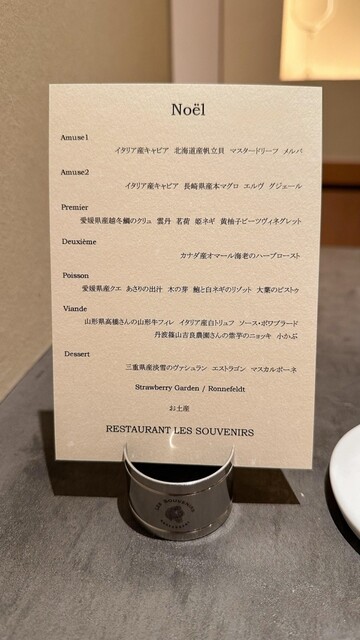 Noël
Amuse1
イタリア産キャビア 北海道産帆立貝 マスタードリーフ メルバ
Amuse2
イタリア産キャビア 長崎県産本マグロ エルヴ グジェール
Premier
愛媛県産越冬鰤のクリュ 雲丹 茗荷 姫ネギ 黄柚子ビーツヴィネグレット
Deuxième
カナダ産オマール海老のハーブロースト
Poisson
愛媛県産クエ あさりの出汁 木の芽 鮑と白ネギのリゾット 大葉のピストゥ
Viande
山形県高橋さんの山形牛フィレ イタリア産白トリュフ ソース・ポワブラード
丹波篠山吉良農園さんの紫芋のニョッキ 小かぶ
Dessert
三重県産淡雪のヴァシュラン エストラゴン マスカルポーネ
Strawberry Garden / Ronnefeldt
お土産
RESTAURANT LES SOUVENIRS
LES SOUVENIRS
RESTAURANT